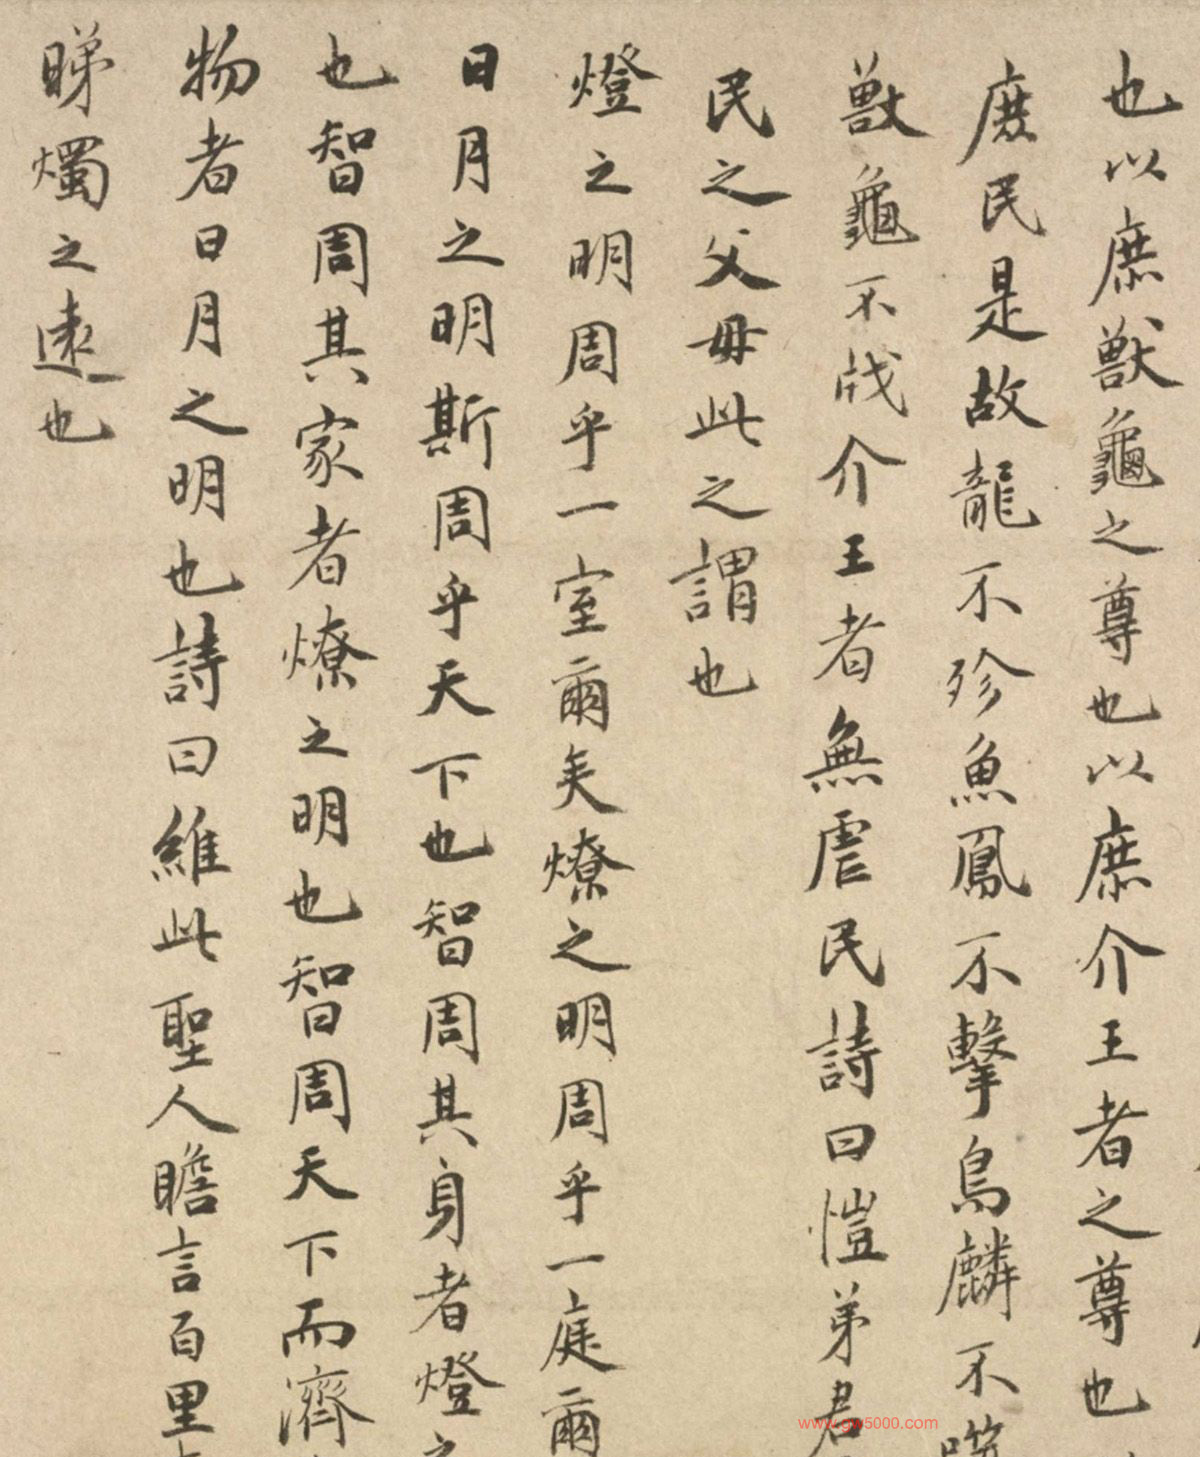 也以庶獸龜之尊也以庶介王者之尊也
庶民是故龍不殄魚鳳不擊鳥麟不噬
獸龜不戕介王者無虐民詩曰愷弟君
民之父毋此之謂也
燈之明周乎一室爾矣燎之明周乎一庭爾
日月之明斯周乎天下也智周其身者燈之
也智周其家者燎之明也智周天下而濟
物者日月之明也詩曰維此聖人瞻言百里
睇燭之遠也
www.gw5000.com